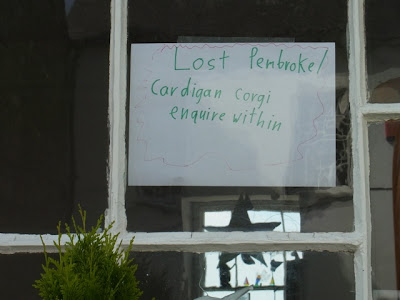 Lost Penbroke/
Cardigan Corgi
enquire within